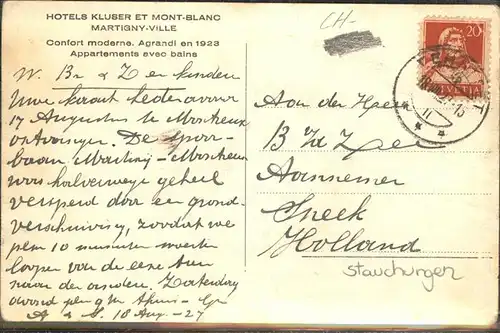 HOTELS KLUSER ET MONT-BLANC
MARTIGNY-VILLE
Confort moderne. Agrandi en 1923
Appartements avec bains
W. Br & Z en kinden
Uwe kaart hedenavond
17 Augustus te
ontvangen. De spoor-
baan Martiny-
was halverwege geheel
versperd door een grond-
verschuiving, zoodat we
plm 10 minuten moesten
loopen van de eene trein
naar de anderen. Zaterdag
avond plm 9 u thuis - Gr
A & S 18 Aug. - 27
CH-
20
HELVETIA
Aan den Heer
B v/d Zee
Aannemer
Sneek
Holland
Stauchungen